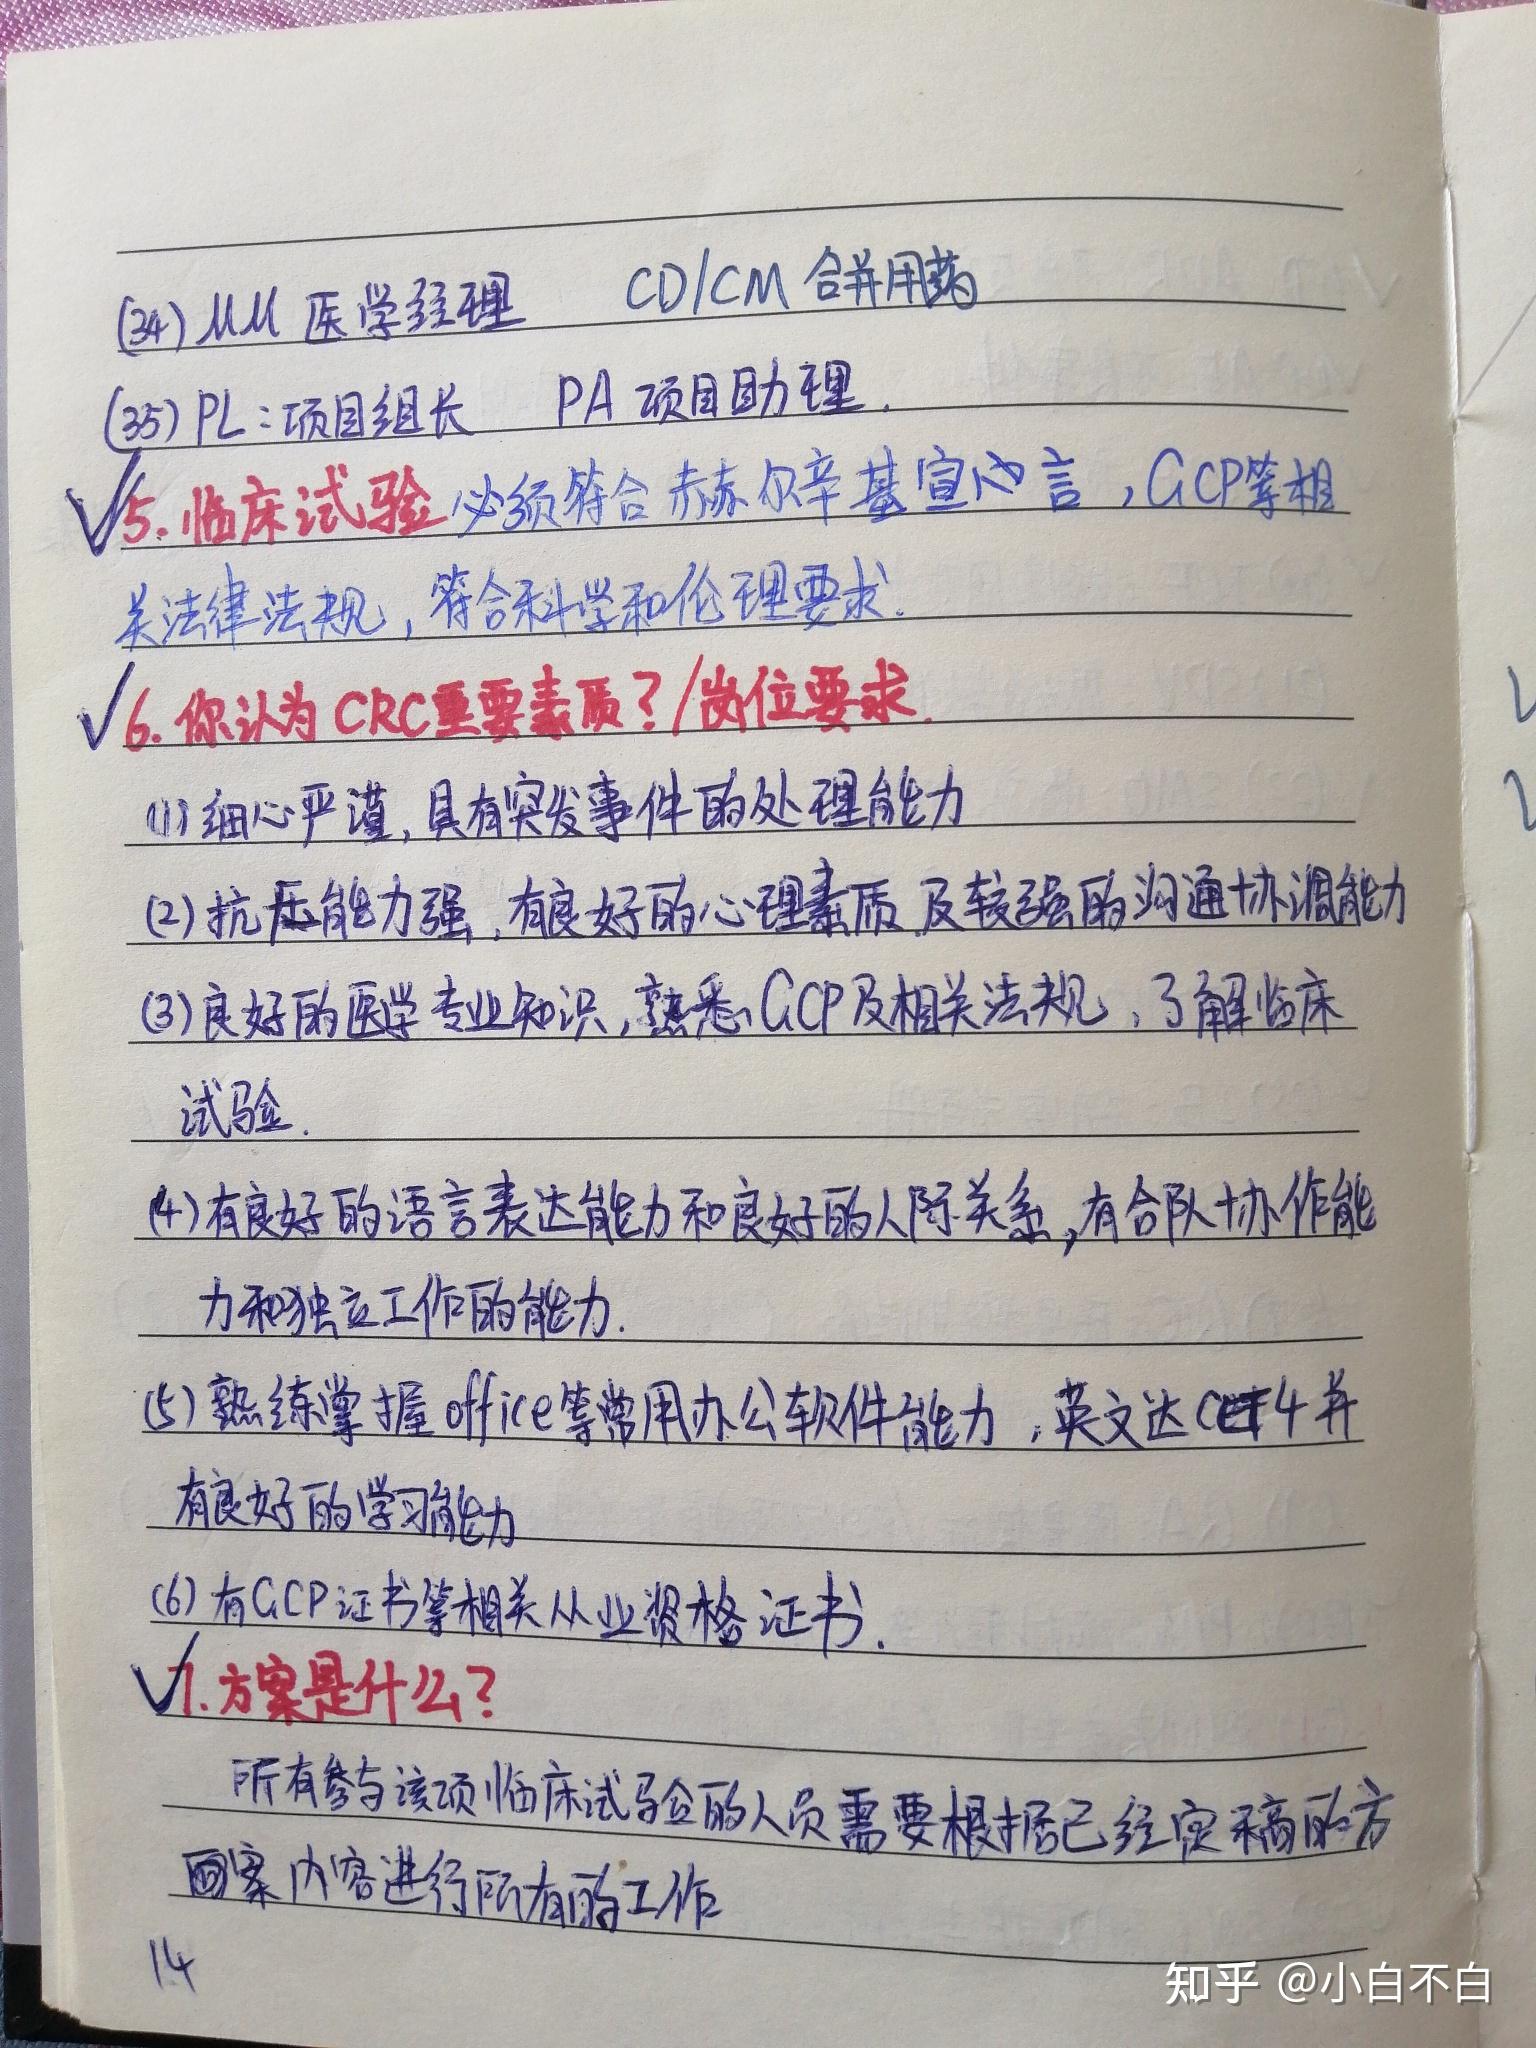 (34) MM 医学经理 CD/CM 合并用药
(35) PL：项目组长 PA 项目助理.
5. 临床试验必须符合赫尔辛基宣言，GCP等相
关法律法规，符合科学和伦理要求.
6. 你认为CRC重要素质？/岗位要求.
(1) 细心严谨，具有突发事件的处理能力
(2) 抗压能力强，有良好的心理素质及较强的沟通协调能力
(3) 良好的医学专业知识，熟悉GCP及相关法规，了解临床
试验.
(4) 有良好的语言表达能力和良好的人际关系，有合队协作能
力和独立工作的能力.
(5) 熟练掌握office等常用办公软件能力，英文达CET4并
有良好的学习能力
(6) 有GCP证书等相关从业资格证书.
7. 方案是什么？
所有参与该项临床试验的人员需要根据已经定稿的方
案内容进行所有的工作
14
知乎 @小白不白